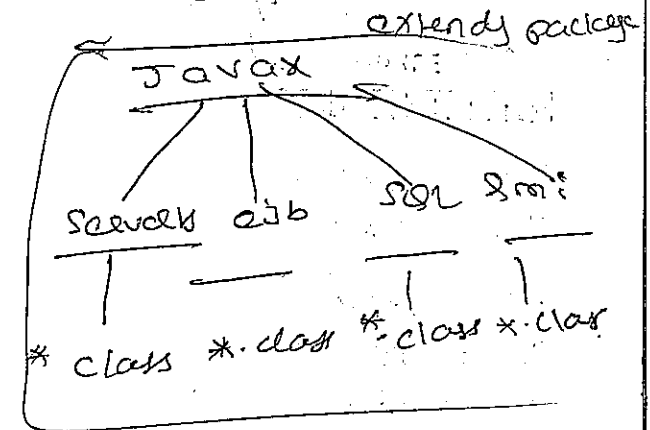 extends package
Javax
Servlets ejb SQL rmi
* class *.class *.class *.clas